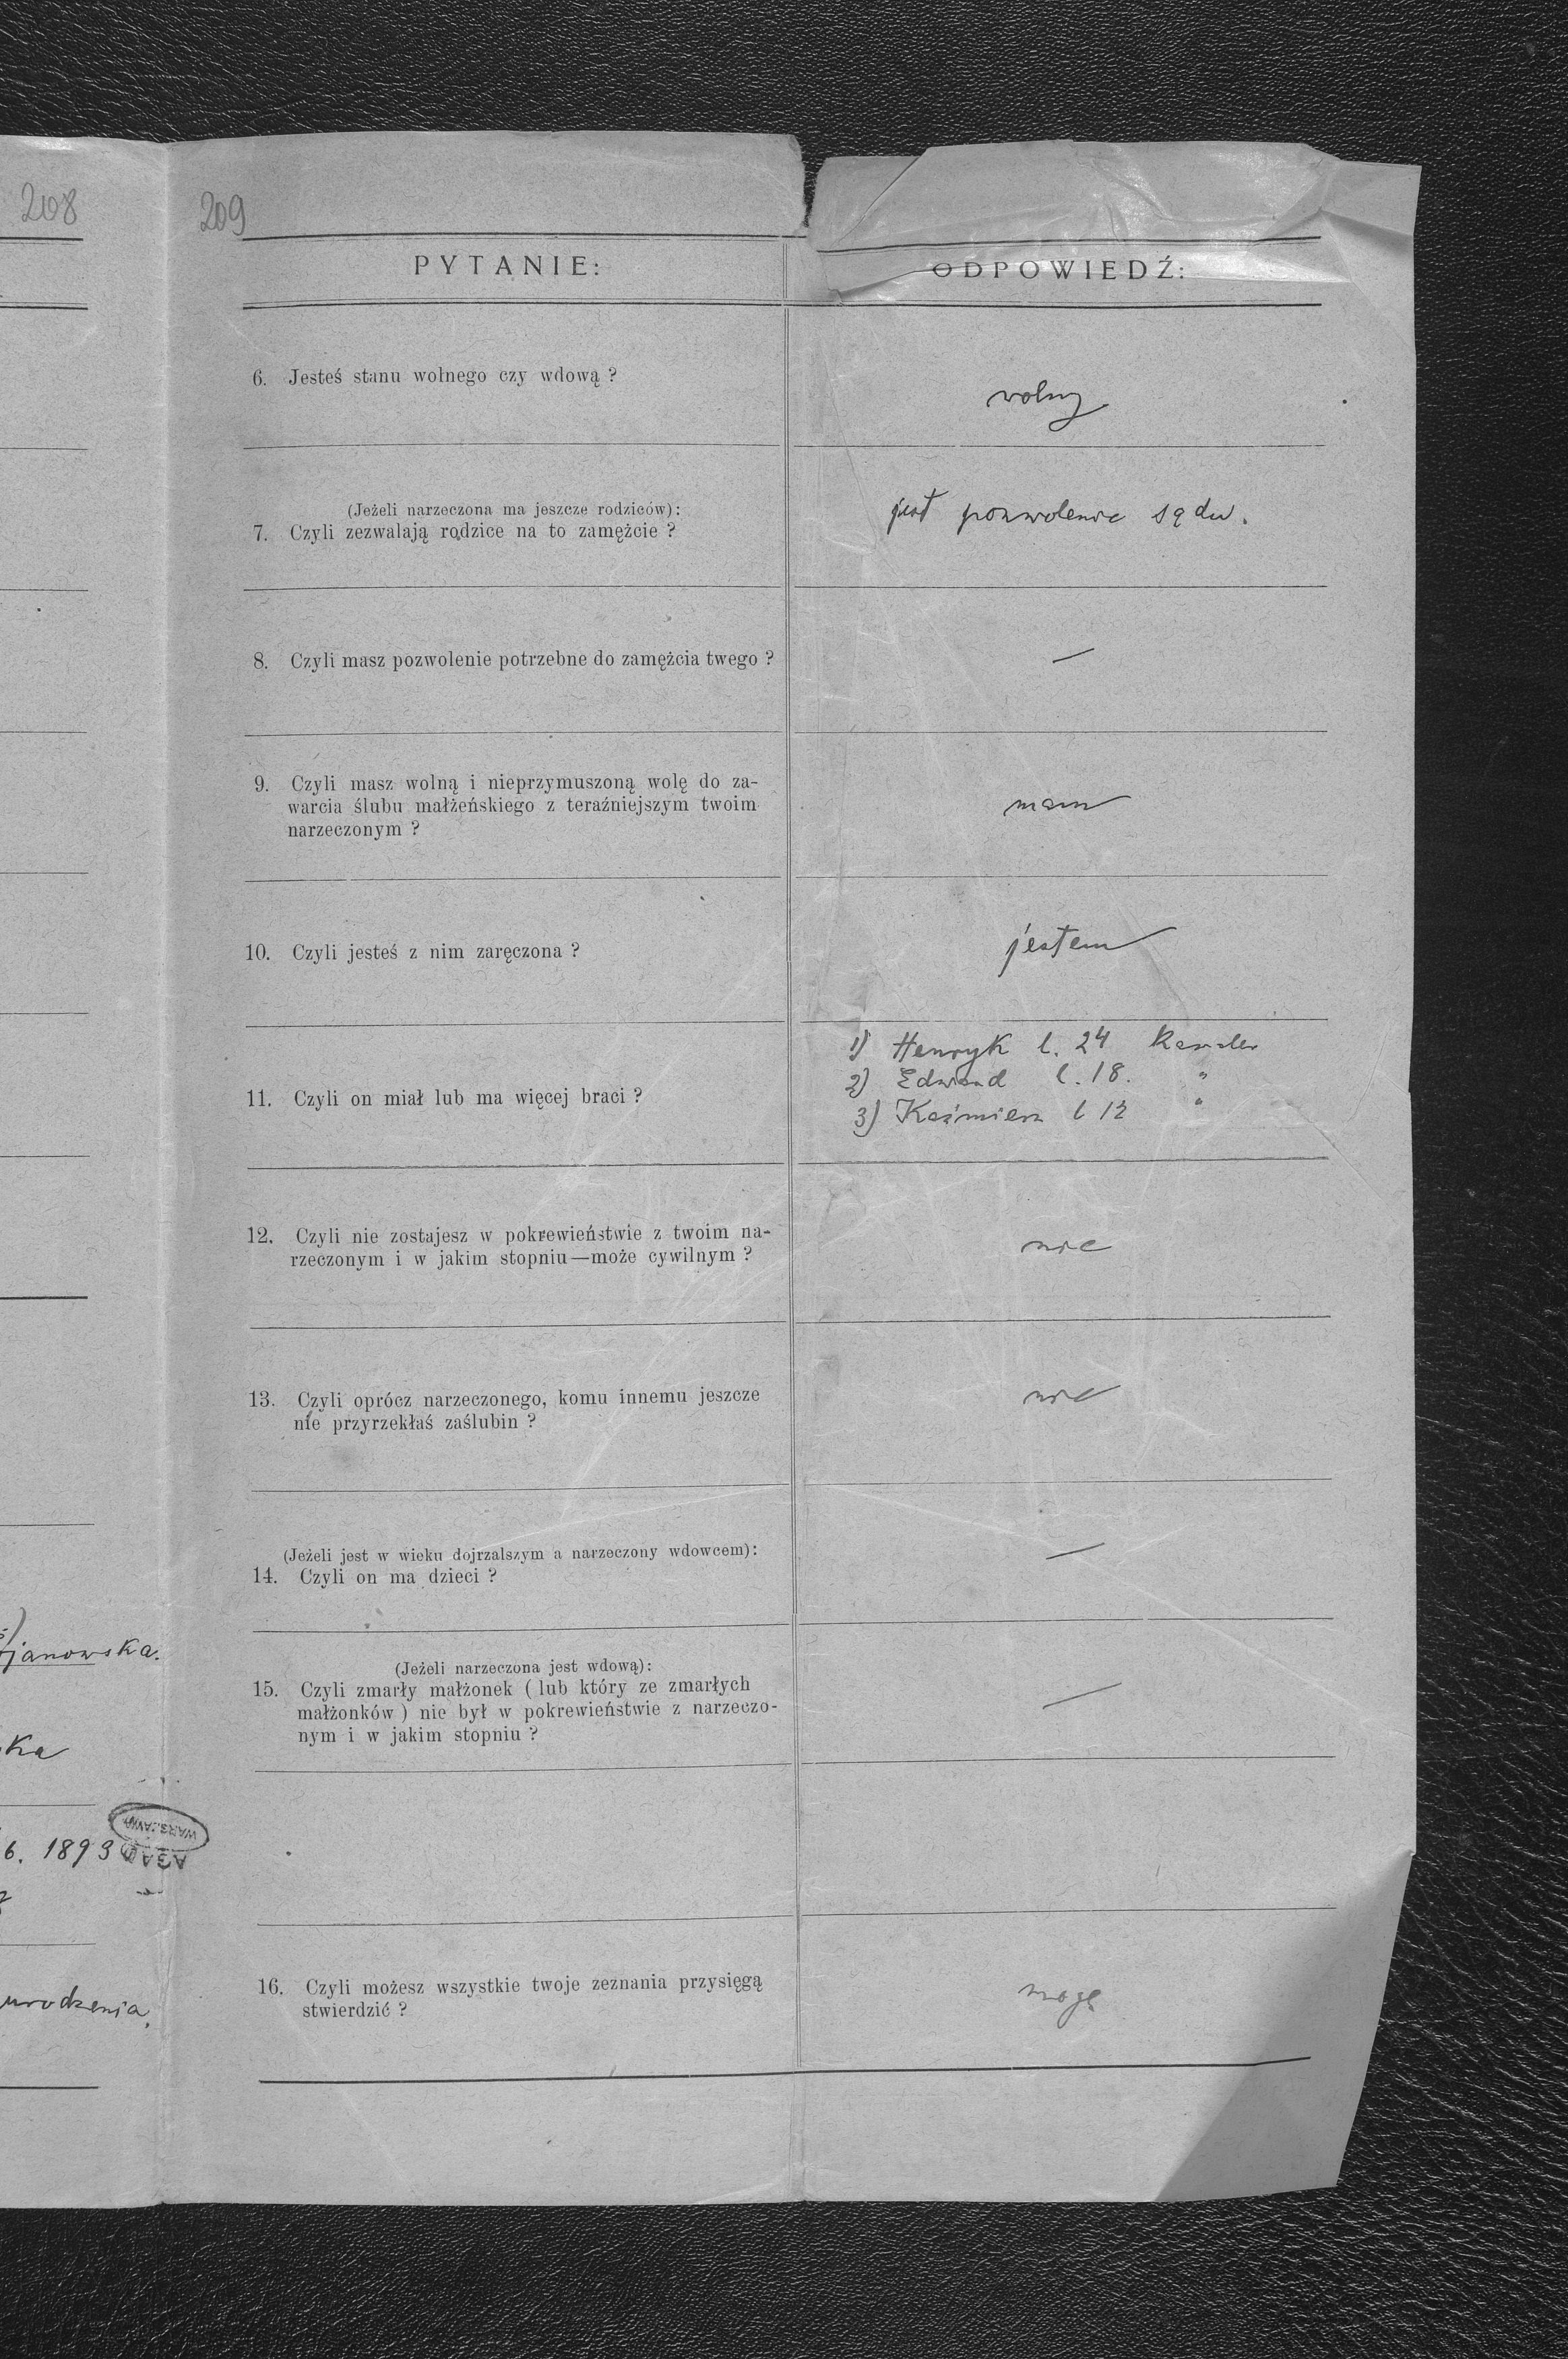 208
209
PYTANIE:
ODPOWIEDŹ:
6. Jesteś stanu wolnego czy wdową ?
wolny
(Jeżeli narzeczona ma jeszcze rodziców):
7. Czyli zezwalają rodzice na to zamężcie ?
jest pozwolenie sądu.
8. Czyli masz pozwolenie potrzebne do zamężcia twego ?
—
9. Czyli masz wolną i nieprzymuszoną wolę do za-
warcia ślubu małżeńskiego z teraźniejszym twoim
narzeczonym ?
mam
10. Czyli jesteś z nim zaręczona ?
jestem
11. Czyli on miał lub ma więcej braci ?
1) Henryk l. 24
2) Edward l. 18. "
3) Kaźmierz l 12 "
12. Czyli nie zostajesz w pokrewieństwie z twoim na-
rzeczonym i w jakim stopniu—może cywilnym ?
nie
13. Czyli oprócz narzeczonego, komu innemu jeszcze
nie przyrzekłaś zaślubin ?
nie
(Jeżeli jest w wieku dojrzalszym a narzeczony wdowcem):
14. Czyli on ma dzieci ?
—
(Jeżeli narzeczona jest wdową):
15. Czyli zmarły małżonek ( lub który ze zmarłych
małżonków ) nie był w pokrewieństwie z narzeczo-
nym i w jakim stopniu ?
—
16. Czyli możesz wszystkie twoje zeznania przysięgą
stwierdzić ?
mogę
janowska.
ka
6. 1893
WARSZAWA
AGAD
urodzenia.